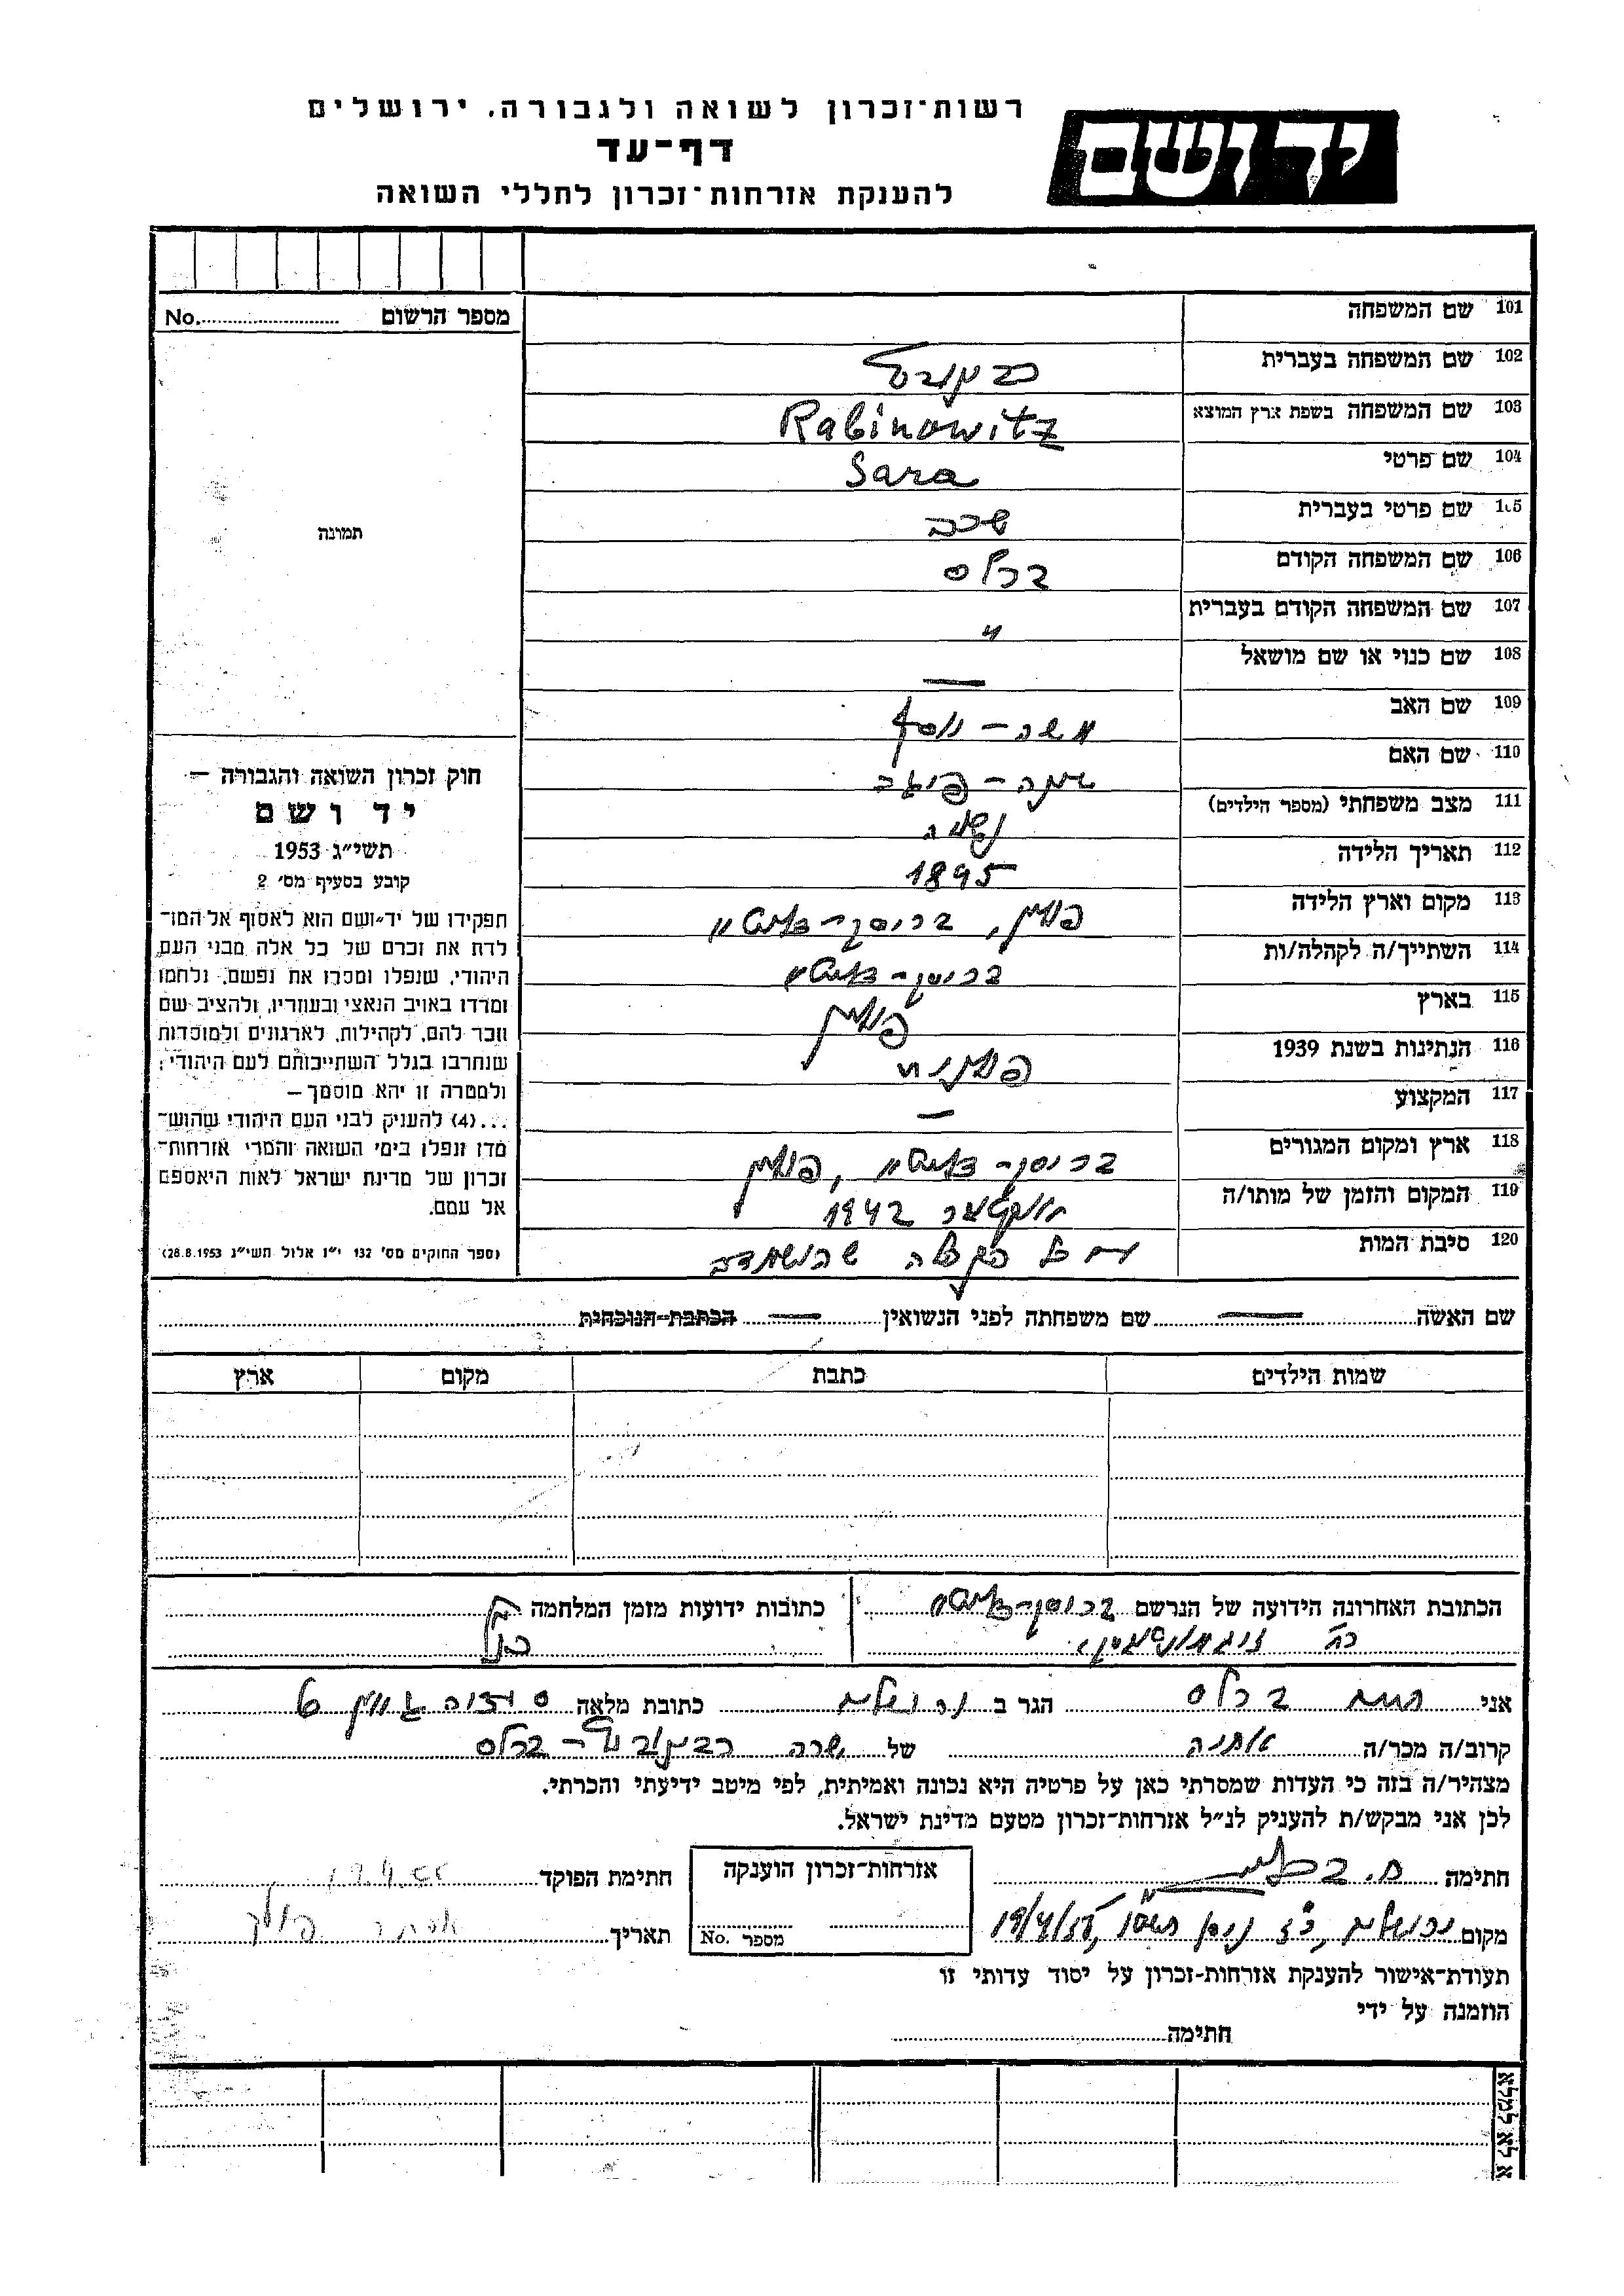 יד ושם
רשות־זכרון לשואה ולגבורה, ירושלים
דף־עד
להענקת אזרחות־זכרון לחללי השואה
מספר הרשום No.
תמונה
חוק זכרון השואה והגבורה —
יד ושם
תשי״ג 1953
קובע בסעיף מס׳ 2
תפקידו של יד־ושם הוא לאסוף אל המו־
לדת את זכרם של כל אלה מבני העם
היהודי, שנפלו ומסרו את נפשם, נלחמו
ומרדו באויב הנאצי ובעוזריו, ולהציב שם
וזכר להם, לקהילות, לארגונים ולמוסדות
שנחרבו בגלל השתייכותם לעם היהודי;
ולמטרה זו יהא מוסמך —
...(4) להעניק לבני העם היהודי שהוש־
מדו ונפלו בימי השואה והמרי אזרחות־
זכרון של מדינת ישראל לאות היאספם
אל עמם.
(ספר החוקים מס׳ 132 י״ז אלול תשי״ג 28.8.1953)
101 שם המשפחה
102 שם המשפחה בעברית רבינוביץ
103 שם המשפחה בשפת ארץ המוצא Rabinowitz
104 שם פרטי Sara
105 שם פרטי בעברית שרה
106 שם המשפחה הקודם ברלס
107 שם המשפחה הקודם בעברית "
108 שם כנוי או שם מושאל —
109 שם האב משה - יוסף
110 שם האם
111 מצב משפחתי (מספר הילדים) נשואה
112 תאריך הלידה 1895
113 מקום וארץ הלידה פולין,
114 השתייך/ה לקהלה/ות
115 בארץ פולין
116 הנתינות בשנת 1939 פולנית
117 המקצוע —
118 ארץ ומקום המגורים פולין
119 המקום והזמן של מותו/ה אוקטובר 1942
120 סיבת המות עם כל הקהלה שהושמדה
שם האשה — שם משפחתה לפני הנשואין — הכתבת הנוכחית
שמות הילדים כתבת מקום ארץ
הכתובת האחרונה הידועה של הנרשם
כתובות ידועות מזמן המלחמה
אני ברלס הגר ב ירושלים כתובת מלאה
קרוב/ה מכר/ה של שרה רבינוביץ - ברלס
מצהיר/ה בזה כי העדות שמסרתי כאן על פרטיה היא נכונה ואמיתית, לפי מיטב ידיעתי והכרתי.
לכן אני מבקש/ת להעניק לנ״ל אזרחות־זכרון מטעם מדינת ישראל.
חתימה
אזרחות־זכרון הוענקה
מספר No.
חתימת הפוקד
מקום ירושלים, כ"ז ניסן
תאריך
תעודת־אישור להענקת אזרחות־זכרון על יסוד עדותי זו
הוזמנה על ידי
חתימה
נא לא למלא